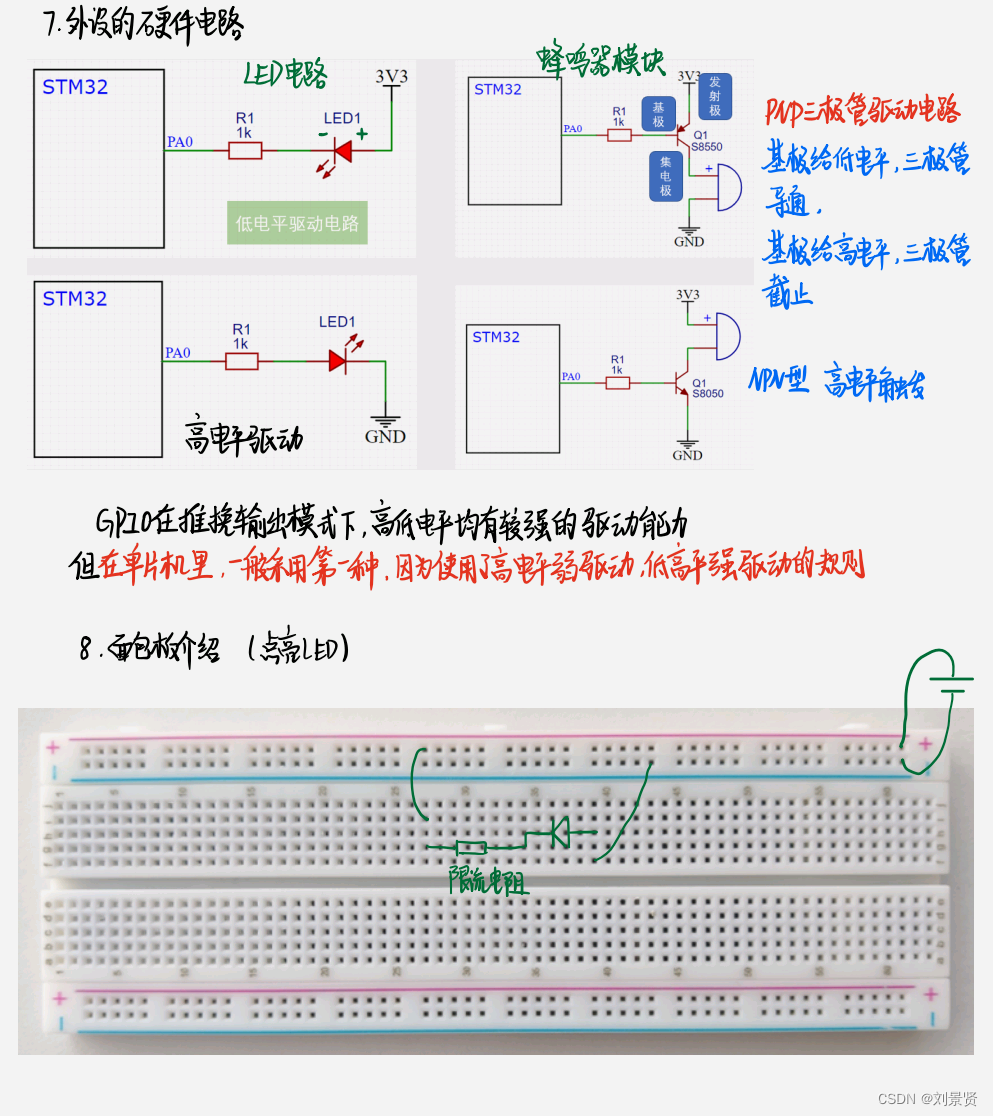 7.外设的硬件电路
LED电路
STM32
PA0
R1
1k
LED1
- +
3V3
低电平驱动电路
蜂鸣器模块
STM32
PA0
R1
1k
基极
3V3
发射极
Q1
S8550
集电极
+
GND
PNP三极管驱动电路
基极给低电平,三极管
导通.
基极给高电平,三极管
截止
STM32
PA0
R1
1k
LED1
GND
高电平驱动
STM32
PA0
R1
1k
3V3
+
Q1
S8050
GND
NPN型 高电平触发
GPIO在推挽输出模式下,高低电平均有较强的驱动能力
但在单片机里,一般采用第一种,因为使用了高电平弱驱动,低高平强驱动的规则
8.面包板介绍 (点亮LED)
+ +
- -
1 5 10 15 20 25 30 35 40 45 50 55 60
j j
i i
h h
g g
f f
限流电阻
e e
d d
c c
b b
a a
1 5 10 15 20 25 30 35 40 45 50 55 60
+ +
- -
CSDN @刘景贤